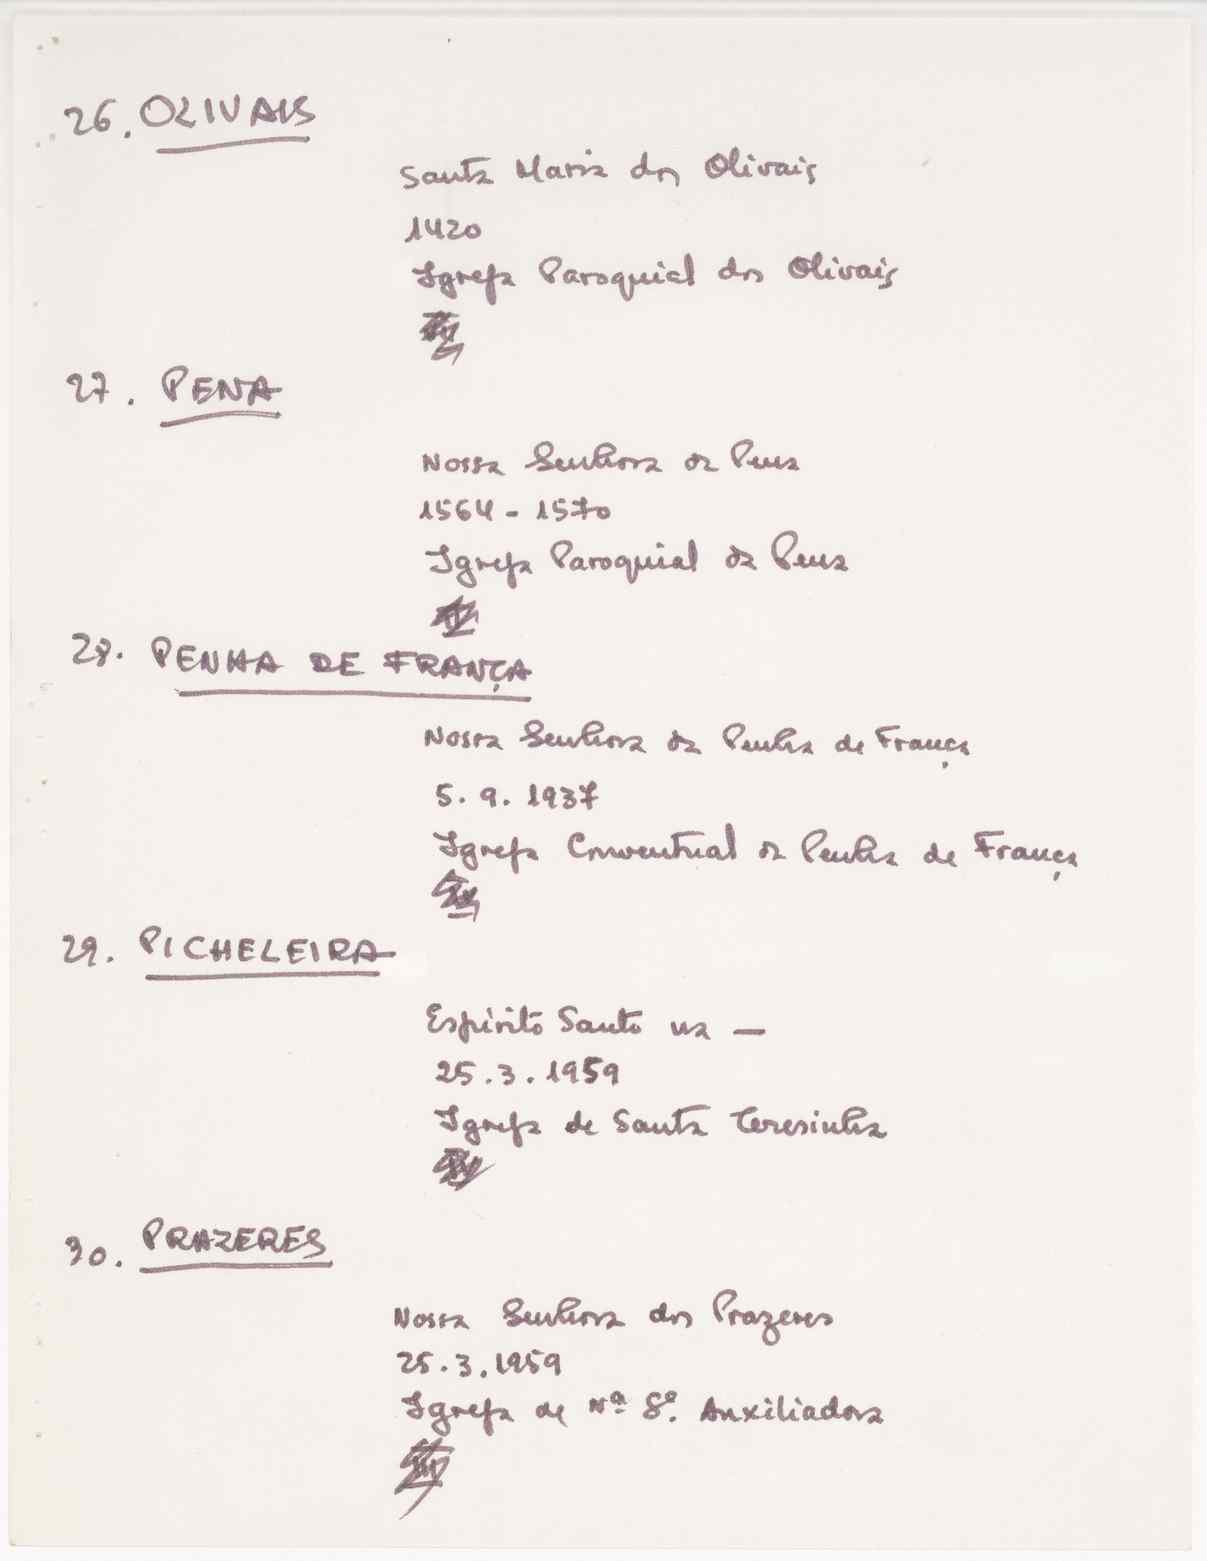 26. OLIVAIS
Santa Maria dos Olivais
1420
Igreja Paroquial dos Olivais
27. PENA
Nossa Senhora da Pena
1564 - 1570
Igreja Paroquial da Pena
28. PENHA DE FRANÇA
Nossa Senhora da Penha de França
5. 9. 1937
Igreja Conventual da Penha de França
29. PICHELEIRA
Espírito Santo na —
25.3.1959
Igreja de Santa Teresinha
30. PRAZERES
Nossa Senhora dos Prazeres
25.3.1959
Igreja de Nª Sª. Auxiliadora